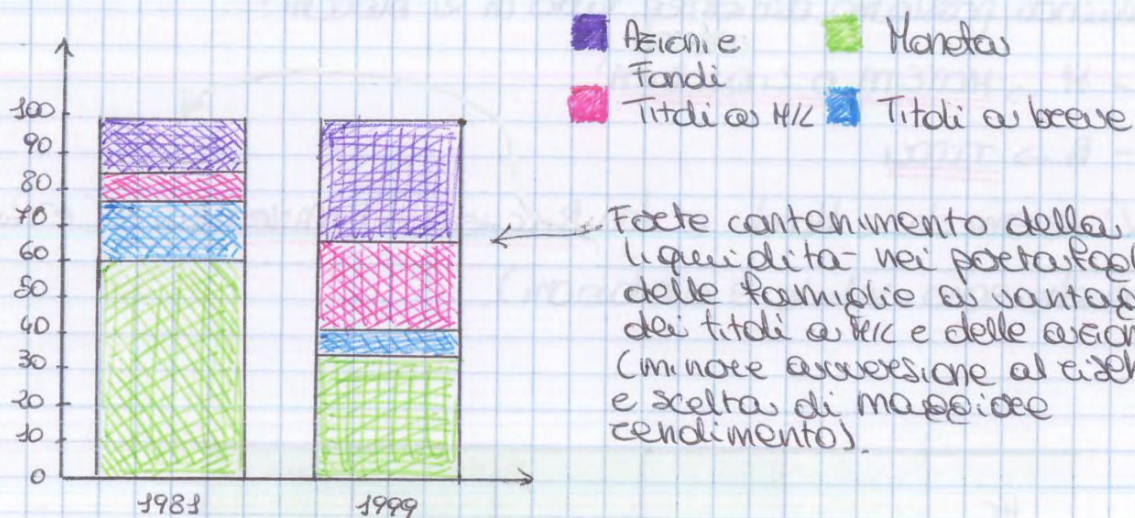 Azioni e
Fondi
Moneta
Titoli a M/L
Titoli a breve
100
90
80
70
60
50
40
30
20
10
0
1981
1999
Forte contenimento della
liquidità nei portafogl
delle famiglie a vantag
dei titoli a M/L e delle azion
(minore avversione al risch
e scelta di maggiore
rendimento).